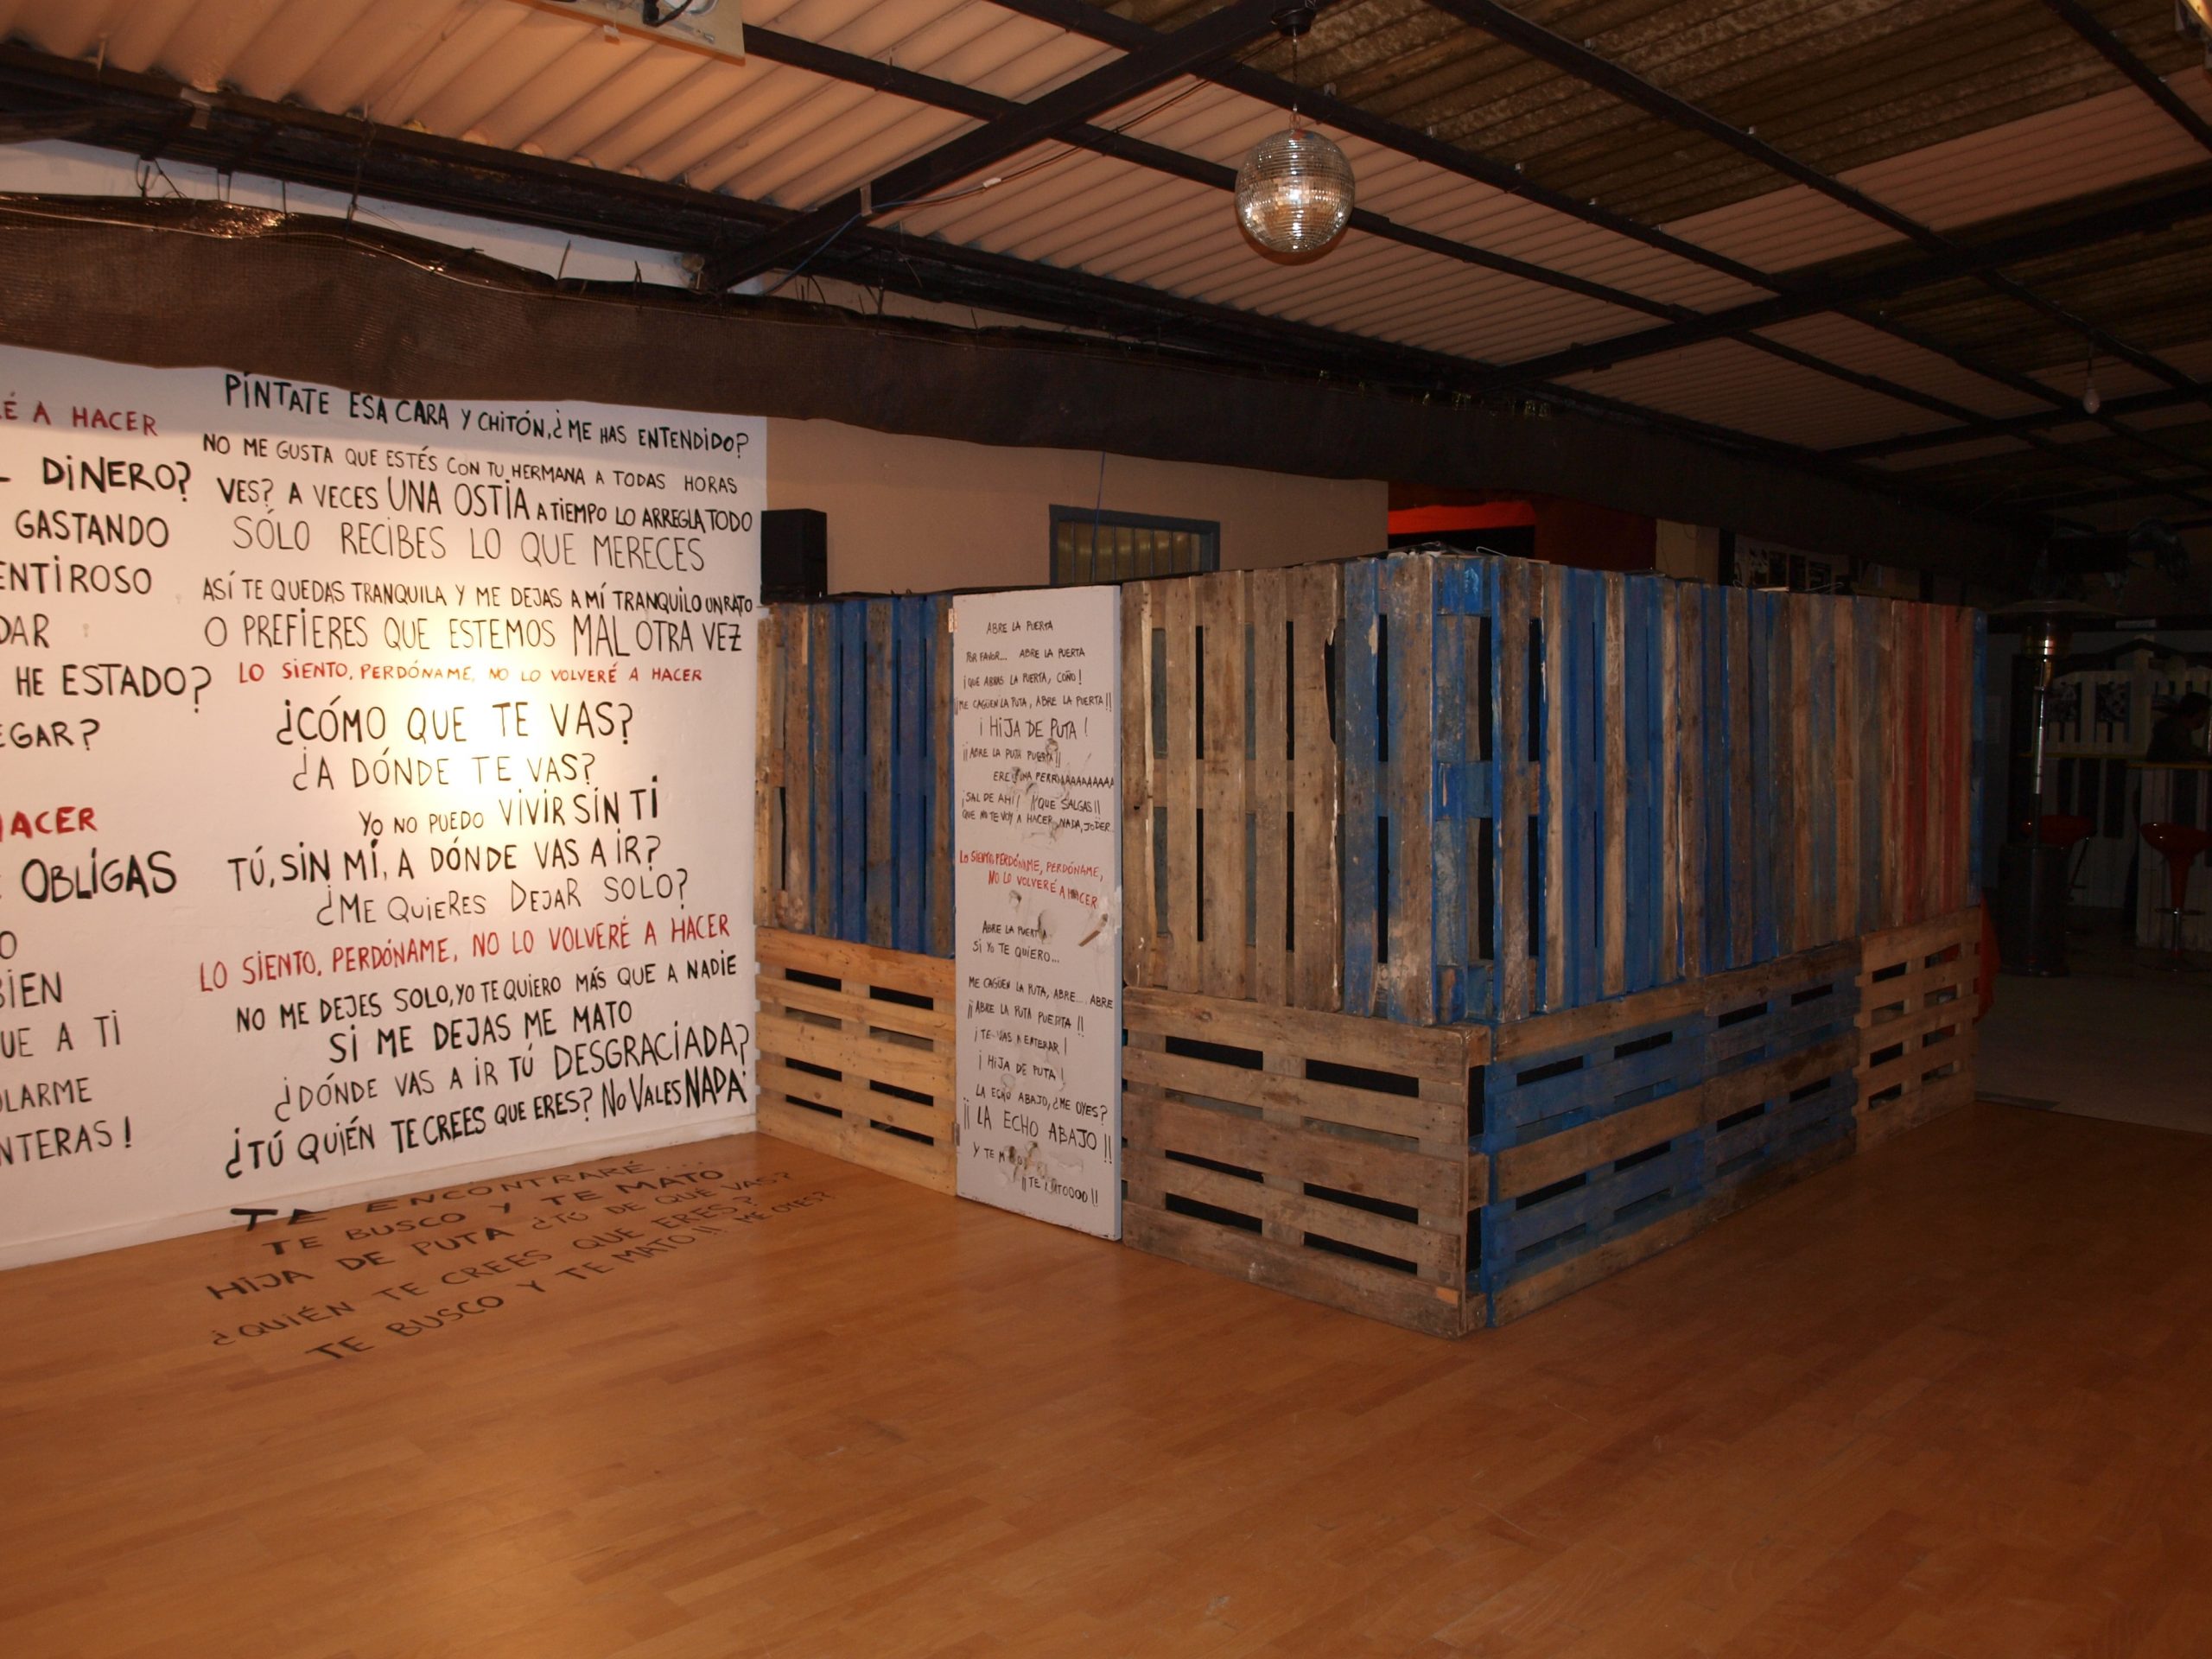 É A HACER
DINERO?
GASTANDO
HE ESTADO?
HACER
OBLIGAS
UE A TI
PÍNTATE ESA CARA Y CHITÓN, ¿ME HAS ENTENDIDO?
NO ME GUSTA QUE ESTÉS CON TU HERMANA A TODAS HORAS
VES? A VECES UNA OSTIA A TIEMPO LO ARREGLA TODO
SÓLO RECIBES LO QUE MERECES
ASÍ TE QUEDAS TRANQUILA Y ME DEJAS A MÍ TRANQUILO UN RATO
O PREFIERES QUE ESTEMOS MAL OTRA VEZ
LO SIENTO, PERDÓNAME, NO LO VOLVERÉ A HACER
¿CÓMO QUE TE VAS?
¿A DÓNDE TE VAS?
YO NO PUEDO VIVIR SIN TI
TÚ, SIN MÍ, A DÓNDE VAS A IR?
¿ME QUIERES DEJAR SOLO?
LO SIENTO, PERDÓNAME, NO LO VOLVERÉ A HACER
NO ME DEJES SOLO, YO TE QUIERO MÁS QUE A NADIE
SI ME DEJAS ME MATO
¿DÓNDE VAS A IR TÚ DESGRACIADA?
¿TÚ QUIÉN TE CREES QUE ERES? NO VALES NADA
TE ENCONTRARÉ...
TE BUSCO Y TE MATO
HIJA DE PUTA ¿TÚ DE QUÉ VAS?
¿QUIÉN TE CREES QUE ERES?
TE BUSCO Y TE MATO!!! ME OYES?
ABRE LA PUERTA
POR FAVOR... ABRE LA PUERTA
¡QUE ABRAS LA PUERTA, COÑO!
¡¡ME CAGÜEN LA PUTA, ABRE LA PUERTA!!
¡HIJA DE PUTA!
¡¡ABRE LA PUTA PUERTA!!
¡SAL DE AHÍ! ¡¡QUE SALGAS!!
QUE NO TE VOY A HACER NADA, JODER
LO SIENTO, PERDÓNAME, PERDÓNAME,
NO LO VOLVERÉ A HACER
ABRE LA PUERTA
SI YO TE QUIERO...
ME CAGÜEN LA PUTA, ABRE... ABRE
¡¡ABRE LA PUTA PUERTA!!
¡TE VAS A ENTERAR!
¡HIJA DE PUTA!
LA ECHO ABAJO, ¿ME OYES?
¡¡LA ECHO ABAJO!!
Y TE